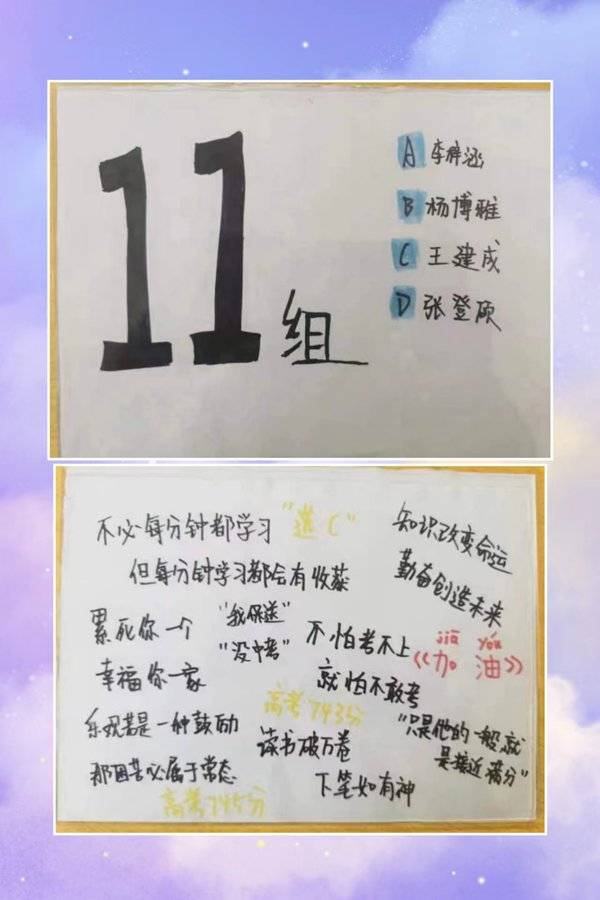 11组
A 李梓涵
B 杨博雅
C 王建成
D 张登硕
不必每分钟都学习
"选C"
但每分钟学习都会有收获
知识改变命运
勤奋创造未来
累死你一个
幸福你一家
"我保送"
"没中考"
不怕考不上
就怕不敢考
jiā yóu
《加 油》
高考743分
乐观若是一种鼓励
那困苦必属于常态
读书破万卷
下笔如有神
"只是他的一般就
是接近满分"
高考745分